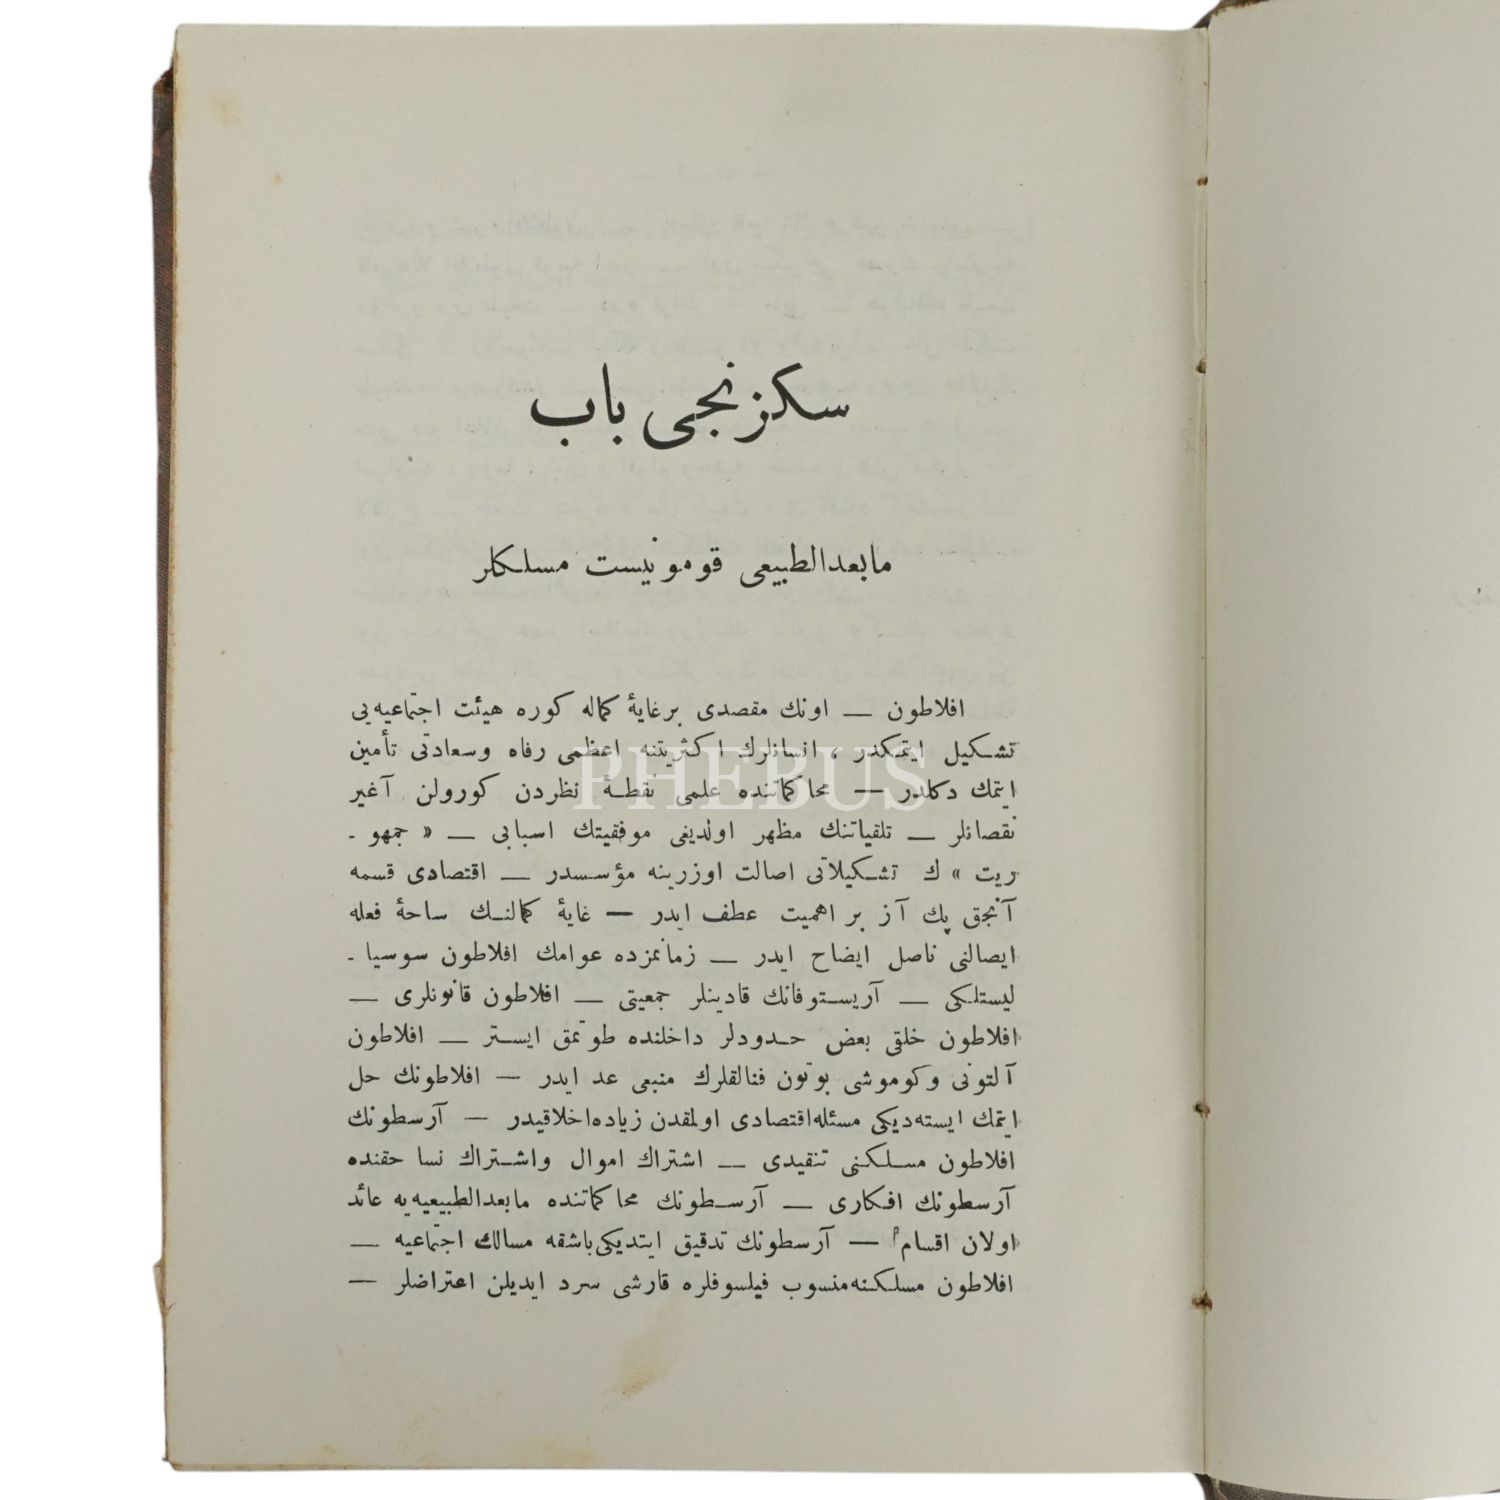 سكزنجى باب
مابعدالطبيعى قومونيست مسلكلر
افلاطون — اونك مقصدى برغايۀ كماله كوره هيئت اجتماعيه‌يى
تشكيل ايتمكدر ، انسانلرك اكثريتنه اعظمى رفاه وسعادتى تأمين
ايتمك دكلدر — محاكماتنده علمى نقطۀ نظردن كورولن آغير
نقصانلر — تلقياتنك مظهر اولديغى موفقيتك اسبابى — « جمهو -
ريت » ك تشكيلاتى اصالت اوزرينه مؤسسدر — اقتصادى قسمه
آنجق پك آز بر اهميت عطف ايدر — غايۀ كمالنك ساحۀ فعله
ايصالنى ناصل ايضاح ايدر — زمانمزده عوامك افلاطون سوسيا -
ليستلكى — آريستوفانك قادينلر جمعيتى — افلاطون قانونلرى —
افلاطون خلقى بعض حدودلر داخلنده طوتمق ايستر — افلاطون
آلتونى وكوموشى بوتون فنالقلرك منبعى عد ايدر — افلاطونك حل
ايتمك ايسته‌ديكى مسئله اقتصادى اولمقدن زياده اخلاقيدر — آرسطونك
افلاطون مسلكنى تنقيدى — اشتراك اموال واشتراك نسا حقنده
آرسطونك افكارى — آرسطونك محاكماتنده مابعدالطبيعيه‌يه عائد
اولان اقسام — آرسطونك تدقيق ايتديكى باشقه مسالك اجتماعيه —
افلاطون مسلكنه منسوب فيلسوفلره قارشى سرد ايديلن اعتراضلر —
PHEBUS